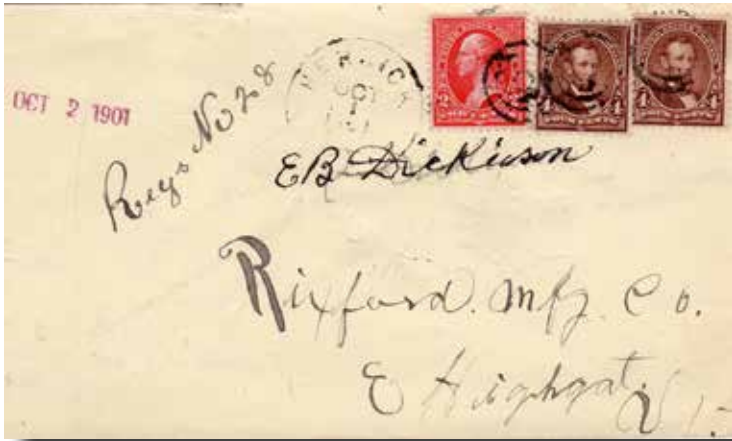 OCT 2 1901
Regs No 28
OCT
E B Dickinson
Rixford. Mfg. Co.
E Highgate